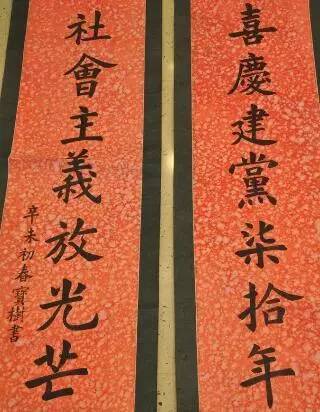 喜慶建黨柒拾年
社會主義放光芒
辛未初春寶樹書